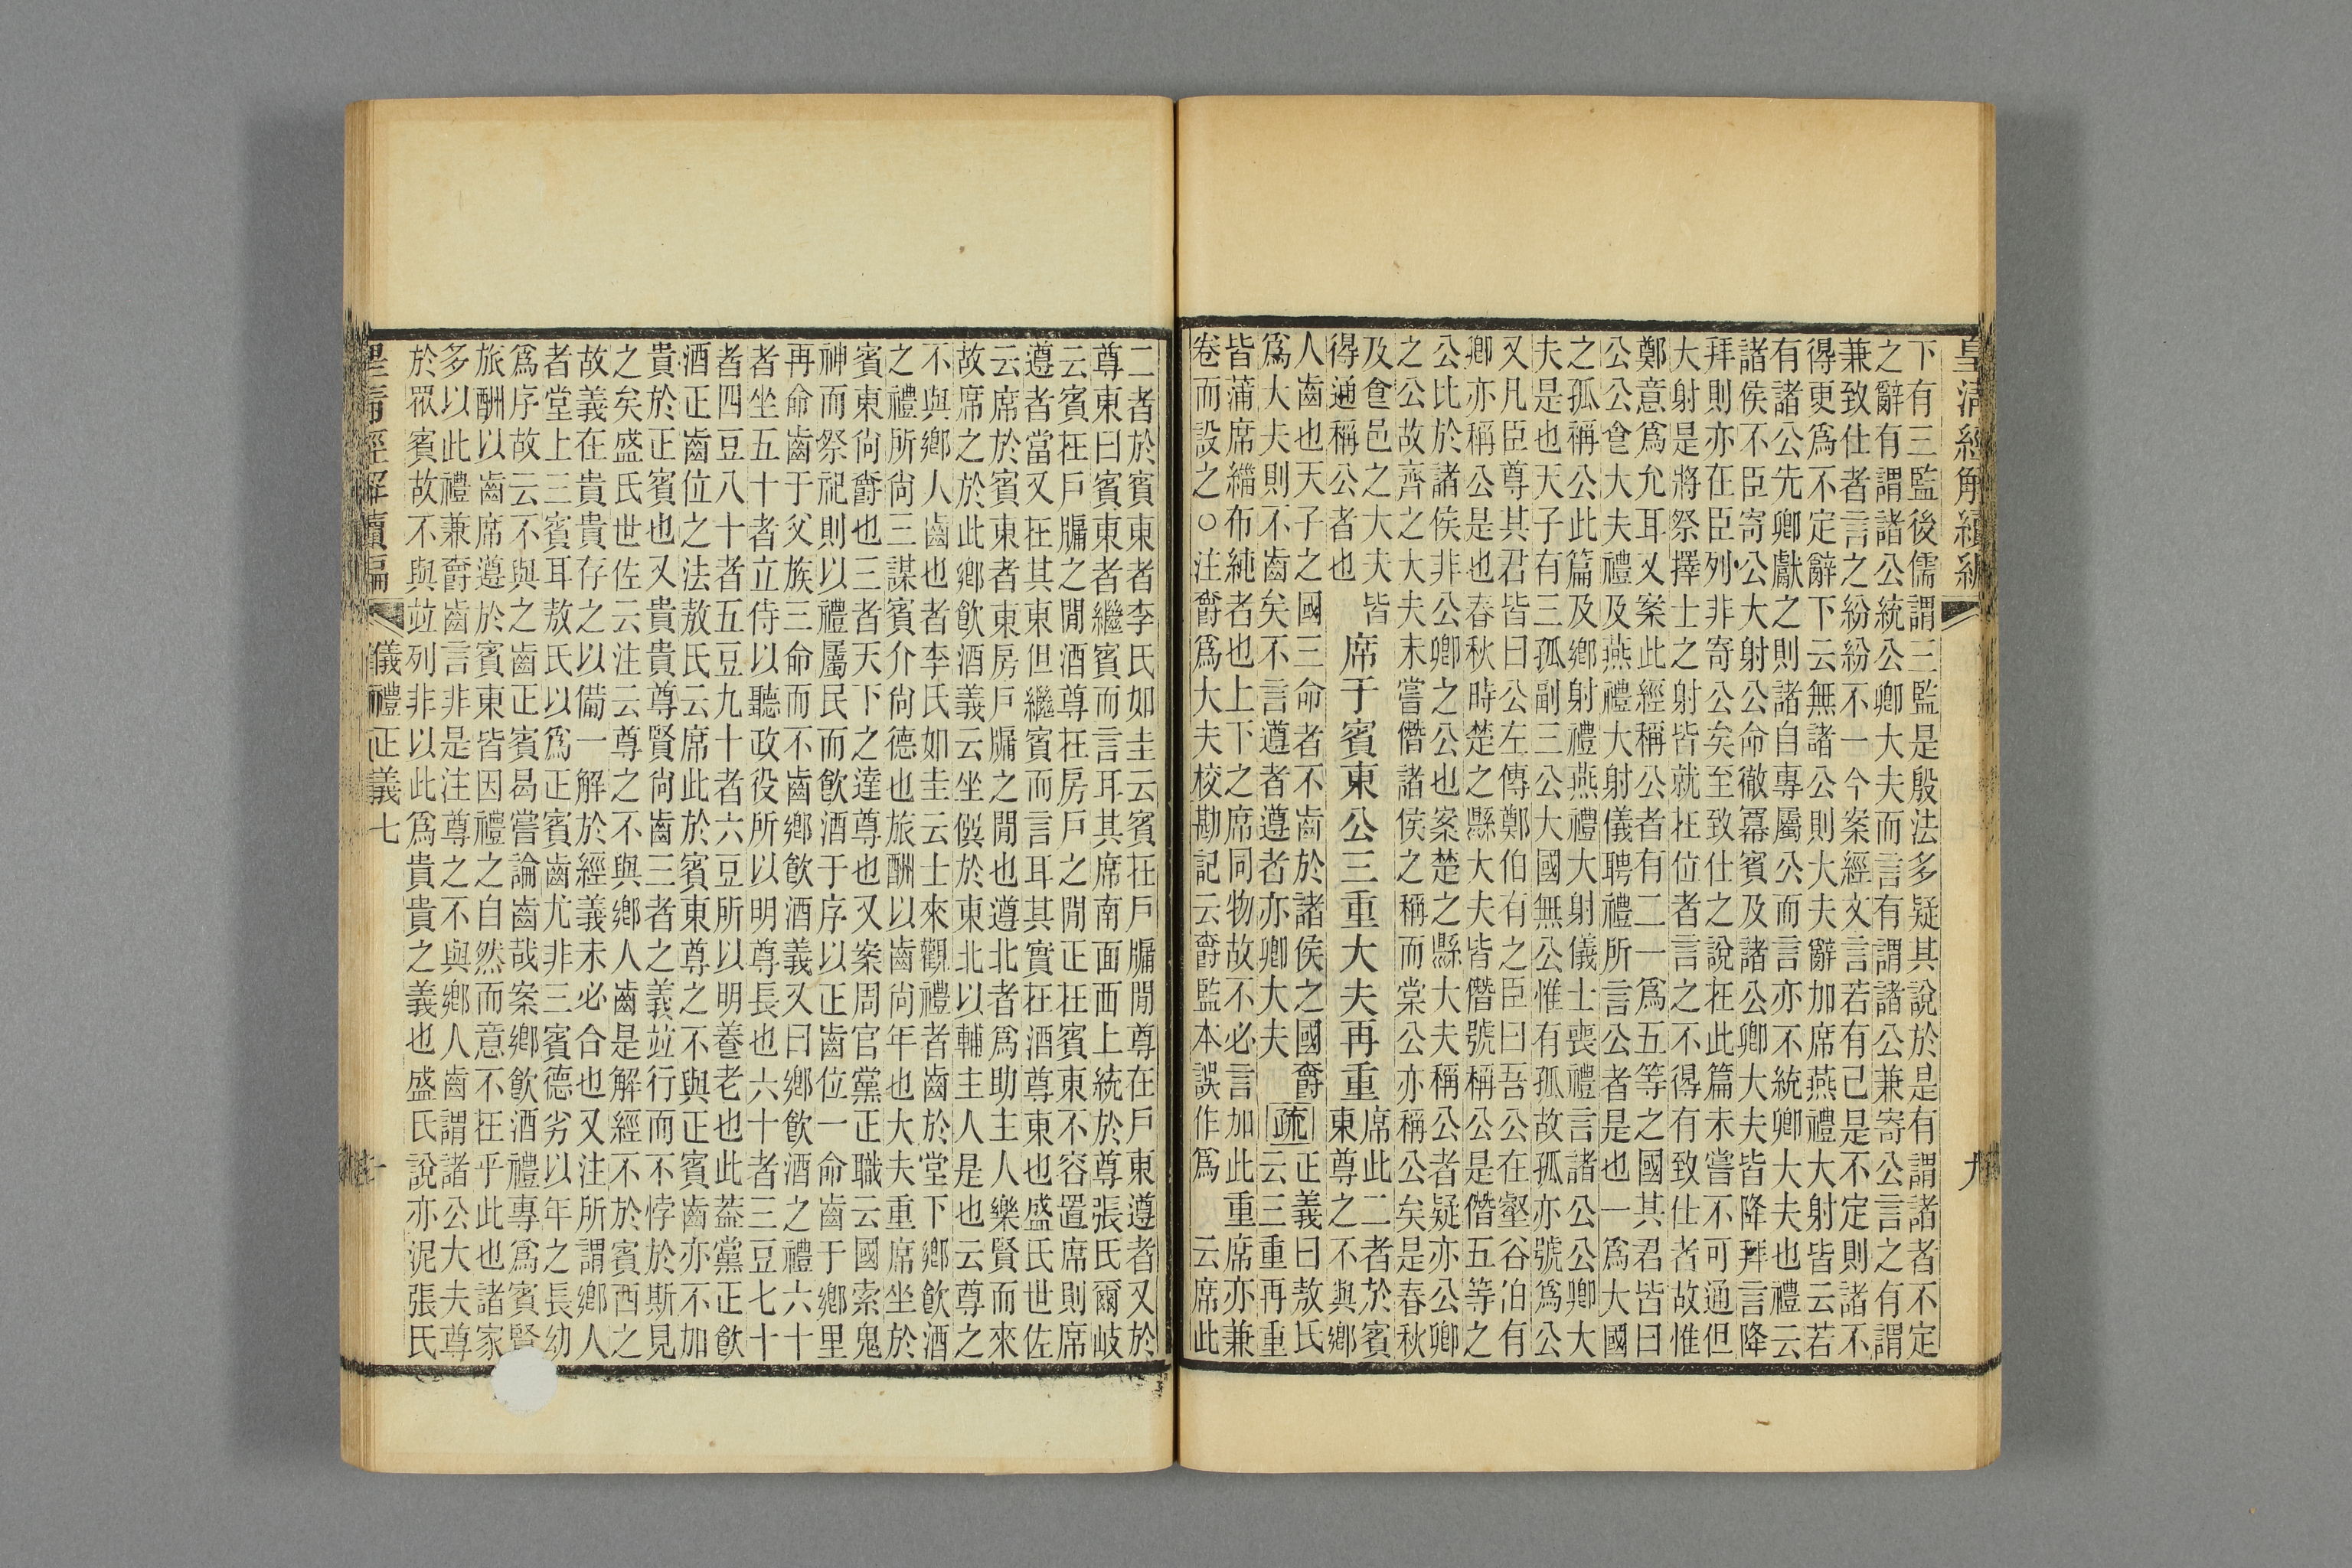 皇清經解續編
九
下有三監後儒謂三監是殷法多疑其說於是有謂諸者不定
之辭有謂諸公統公卿大夫而言有謂諸公兼寄公言之有謂
兼致仕者言之紛紛不一今案經文言若有已是不定則諸不
得更爲不定辭下云無諸公則大夫辭加席燕禮大射皆云若
有諸公先卿獻之則諸自專屬公而言亦不統卿大夫也禮云
諸侯不臣寄公大射公命徹冪賓及諸公卿大夫皆降拜言降
拜則亦在臣列非寄公矣至致仕之說在此篇未嘗不可通但
大射是將祭擇士之射皆就在位者言之不得有致仕者故惟
鄭意爲允耳又案此經稱公者有二一爲五等之國其君皆曰
公公食大夫禮及燕禮大射儀聘禮所言公者是也一爲大國
之孤稱公此篇及鄉射禮燕禮大射儀士喪禮言諸公公卿大
夫是也天子有三孤副三公大國無公惟有孤故孤亦號爲公
又凡臣尊其君皆曰公左傳鄭伯有之臣曰吾公在壑谷伯有
卿亦稱公是也春秋時楚之縣大夫皆僭號稱公是僭五等之
公比於諸侯非公卿之公也案楚之縣大夫稱公者疑亦公卿
之公故齊之大夫未嘗僭諸侯之稱而棠公亦稱公矣是春秋
及食邑之大夫皆
得通稱公者也
席于賓東公三重大夫再重
席此二者於賓
東尊之不與鄉
人齒也天子之國三命者不齒於諸侯之國爵
爲大夫則不齒矣不言遵者遵者亦卿大夫
疏
正義曰敖氏
云三重再重
皆蒲席緇布純者也上下之席同物故不必言加此重席亦兼
卷而設之○注爵爲大夫校勘記云爵監本誤作爲云席此
二者於賓東者李氏如圭云賓在戶牖閒尊在戶東遵者又於
尊東曰賓東者繼賓而言耳其席南面西上統於尊張氏爾岐
云賓在戶牖之閒酒尊在房戶之閒正在賓東不容置席則席
遵者當又在其東但繼賓而言耳其實在酒尊東也盛氏世佐
云席於賓東者東房戶牖之閒也遵北者爲助主人樂賢而來
故席之於此鄉飲酒義云坐僎於東北以輔主人是也云尊之
不與鄉人齒也者李氏如圭云士來觀禮者齒於堂下鄉飲酒
之禮所尚三謀賓介尚德也旅酬以齒尚年也大夫重席坐於
賓東尚爵也三者天下之達尊也又案周官黨正職云國索鬼
神而祭祀則以禮屬民而飲酒于序以正齒位一命齒于鄉里
再命齒于父族三命而不齒鄉飲酒義又曰鄉飲酒之禮六十
者坐五十者立侍以聽政役所以明尊長也六十者三豆七十
者四豆八十者五豆九十者六豆所以明養老也此葢黨正飲
酒正齒位之法敖氏云席此於賓東尊之不與正賓齒亦不加
貴於正賓也又貴貴尊賢尚齒三者之義竝行而不悖於斯見
之矣盛氏世佐云注云尊之不與鄉人齒是解經不於賓西之
故義在貴貴存之以備一解於經義未必合也又注所謂鄉人
者堂上三賓耳敖氏以爲正賓齒尤非三賓德劣以年之長幼
爲序故云不與之齒正賓曷嘗論齒哉案鄉飲酒禮專爲賓賢
旅酬以齒席遵於賓東皆因禮之自然而意不在乎此也諸家
多以此禮兼爵齒言非是注尊之不與鄉人齒謂諸公大夫尊
於眾賓故不與竝列非以此爲貴貴之義也盛氏說亦泥張氏
皇清經解續編
儀禮正義七